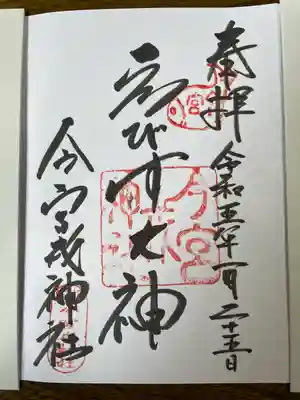 奉拝 令和五年一月二十五日
ゑびす大神
今宮戎神社